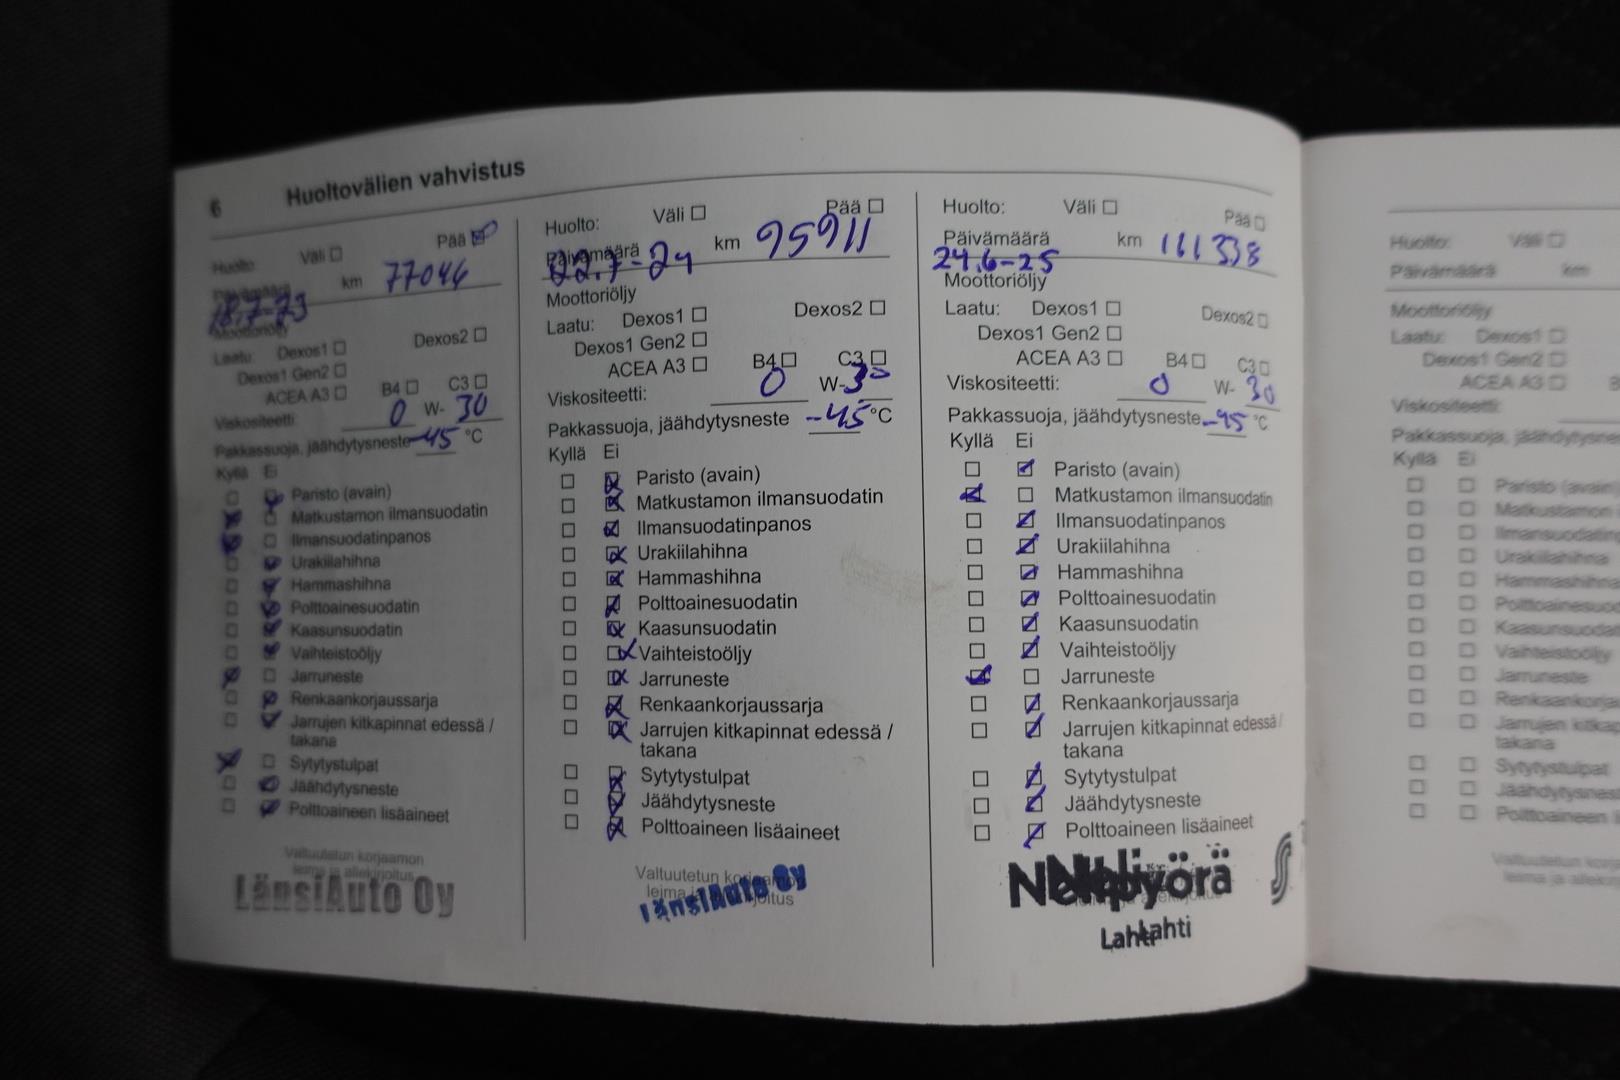 6 Huoltovälien vahvistus
Huolto: Väli Pää
Päivämäärä km 77046
18.7-23
Moottoriöljy
Laatu: Dexos1 Dexos2
Dexos1 Gen2
ACEA A3 B4 C3
Viskositeetti: 0 W- 30
Pakkassuoja, jäähdytysneste -45 °C
Kyllä Ei
Paristo (avain)
Matkustamon ilmansuodatin
Ilmansuodatinpanos
Urakiilahihna
Hammashihna
Polttoainesuodatin
Kaasunsuodatin
Vaihteistoöljy
Jarruneste
Renkaankorjaussarja
Jarrujen kitkapinnat edessä /
takana
Sytytystulpat
Jäähdytysneste
Polttoaineen lisäaineet
Valtuutetun korjaamon
leima ja allekirjoitus
LänsiAuto Oy
Huolto: Väli Pää
Päivämäärä km 95911
22.7-24
Moottoriöljy
Laatu: Dexos1 Dexos2
Dexos1 Gen2
ACEA A3 B4 C3
Viskositeetti: 0 W-30
Pakkassuoja, jäähdytysneste -45 °C
Kyllä Ei
Paristo (avain)
Matkustamon ilmansuodatin
Ilmansuodatinpanos
Urakiilahihna
Hammashihna
Polttoainesuodatin
Kaasunsuodatin
Vaihteistoöljy
Jarruneste
Renkaankorjaussarja
Jarrujen kitkapinnat edessä /
takana
Sytytystulpat
Jäähdytysneste
Polttoaineen lisäaineet
Valtuutetun korjaamon
leima ja allekirjoitus
LänsiAuto Oy
Huolto: Väli Pää
Päivämäärä km 111338
24.6-25
Moottoriöljy
Laatu: Dexos1 Dexos2
Dexos1 Gen2
ACEA A3 B4 C3
Viskositeetti: 0 W- 30
Pakkassuoja, jäähdytysneste -45 °C
Kyllä Ei
Paristo (avain)
Matkustamon ilmansuodatin
Ilmansuodatinpanos
Urakiilahihna
Hammashihna
Polttoainesuodatin
Kaasunsuodatin
Vaihteistoöljy
Jarruneste
Renkaankorjaussarja
Jarrujen kitkapinnat edessä /
takana
Sytytystulpat
Jäähdytysneste
Polttoaineen lisäaineet
Nelipyörä
Lahti
Huolto: Väli
Päivämäärä km
Moottoriöljy
Laatu: Dexos1
Dexos1 Gen2
ACEA A3
Viskositeetti:
Pakkassuoja,
Kyllä Ei
Paristo (avain)
Matkustamon
Urakiilahihna
Hammashihna
Kaasunsuodatin
Vaihteistoöljy
Jarruneste
Jarrujen
takana
Sytytystulpat
Polttoaineen
Valtuutetun
leima ja